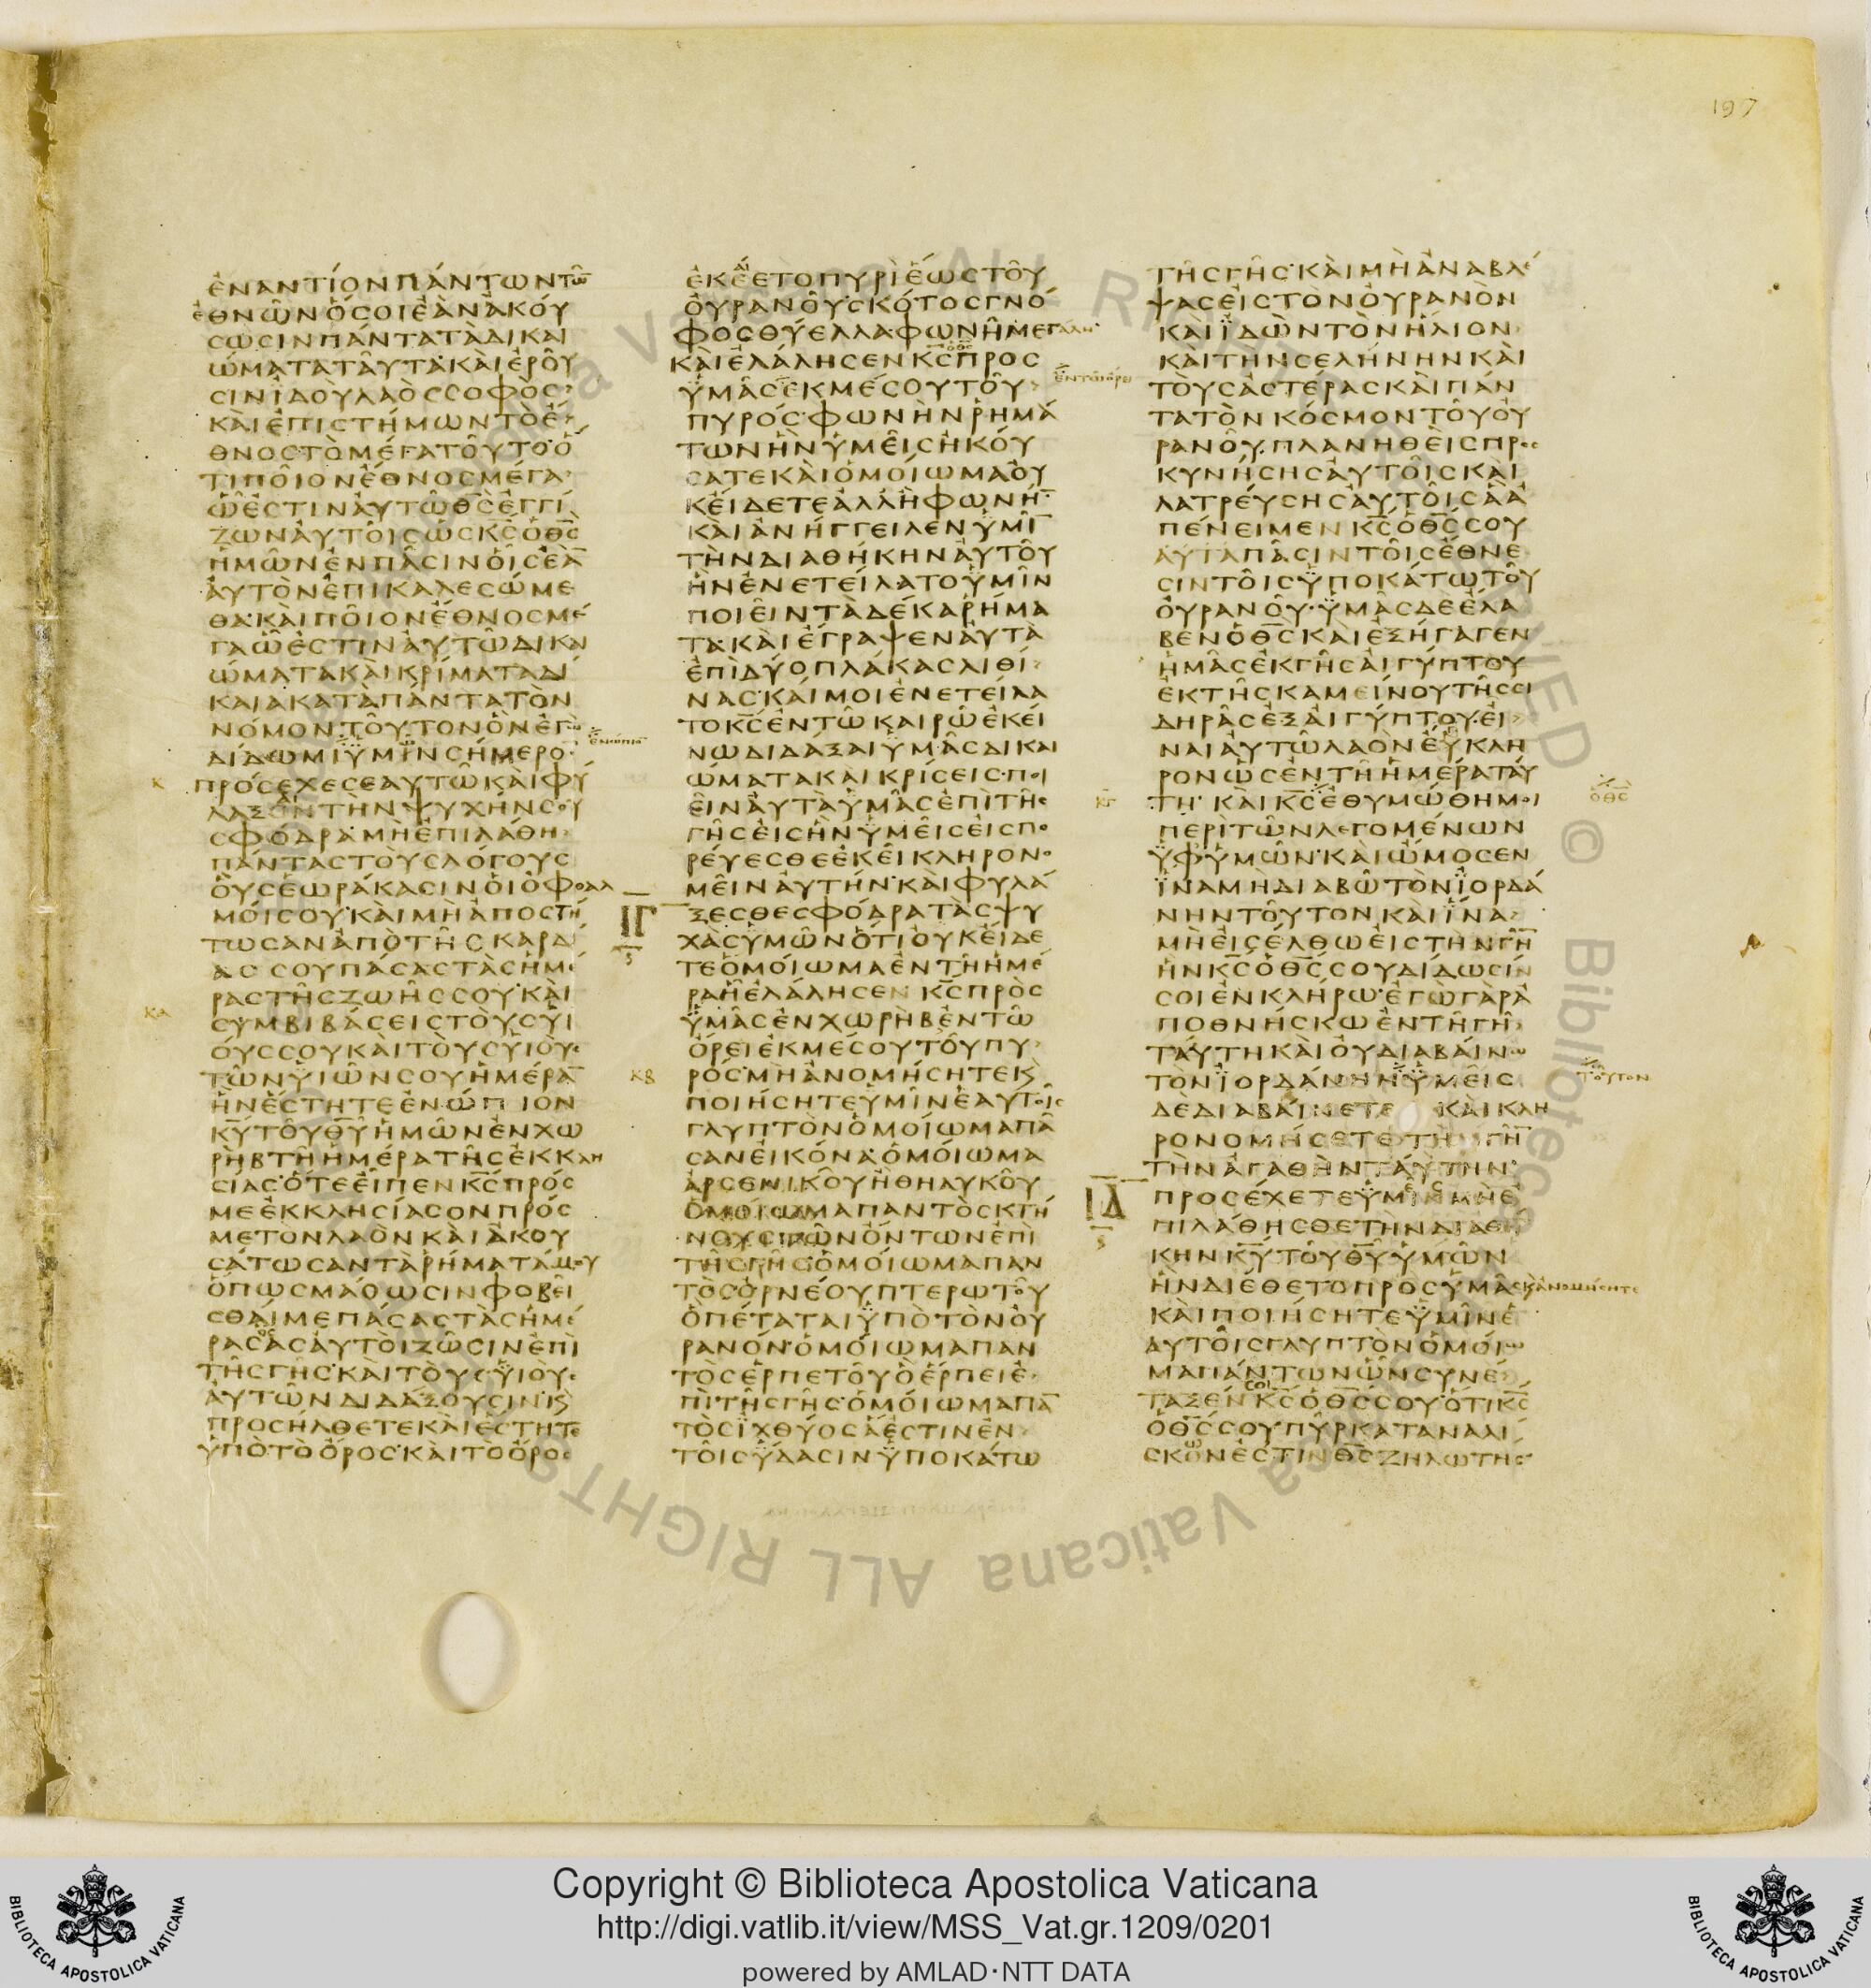 197
ΕΝΑΝΤΙΟΝΠΑΝΤΩΝΤῶ̅
ΕΘΝΩΝΟϹΟΙΕΑΝΑΚΟΥ
ϹΩϹΙΝΠΑΝΤΑΤΑΔΙΚΑΙ
ΩΜΑΤΑΤΑΥΤΑ·ΚΑΙΕΡΟΥ
ϹΙΝΙΔΟΥΛΑΟϹϹΟΦΟϹ
ΚΑΙΕΠΙϹΤΗΜΩΝΤΟΕ
ΘΝΟϹΤΟΜΕΓΑΤΟΥΤΟ·Ο
ΤΙΠΟΙΟΝΕΘΝΟϹΜΕΓΑ
ΩΕϹΤΙΝΑΥΤΩΘ̅Ϲ̅ΕΓΓΙ
ΖΩΝΑΥΤΟΙϹΩϹΚ̅Ϲ̅ΟΘ̅Ϲ̅
ΗΜΩΝΕΝΠΑϹΙΝΟΙϹΕΑ̅
ΑΥΤΟΝΕΠΙΚΑΛΕϹΩΜΕ
ΘΑ·ΚΑΙΠΟΙΟΝΕΘΝΟϹΜΕ
ΓΑΩΕϹΤΙΝΑΥΤΩΔΙΚΑΙ
ΩΜΑΤΑΚΑΙΚΡΙΜΑΤΑΔΙ
ΚΑΙΑΚΑΤΑΠΑΝΤΑΤΟΝ
ΝΟΜΟΝΤΟΥΤΟΝΟΝΕΓΩ
ΕΝΩΠΙΟ̅
ΔΙΔΩΜΙΥΜΙΝϹΗΜΕΡΟ̅
Κ
ΠΡΟϹΕΧΕϹΕΑΥΤΩΚΑΙΦΥ
ΛΑΞΟΝΤΗΝΨΥΧΗΝϹΟΥ
ϹΦΟΔΡΑ·ΜΗΕΠΙΛΑΘΗ
ΠΑΝΤΑϹΤΟΥϹΛΟΓΟΥϹ
ΟΥϹΕΩΡΑΚΑϹΙΝΟΙΟΦΘΑΛ
ΜΟΙϹΟΥ·ΚΑΙΜΗΑΠΟϹΤΗ
ΤΩϹΑΝΑΠΟΤΗϹΚΑΡΔΙ
ΑϹϹΟΥΠΑϹΑϹΤΑϹΗΜΕ
ΡΑϹΤΗϹΖΩΗϹϹΟΥ·ΚΑΙ
ΚΑ
ϹΥΜΒΙΒΑϹΕΙϹΤΟΥϹΥΙ
ΟΥϹϹΟΥΚΑΙΤΟΥϹΥΙΟΥϹ
ΤΩΝΥΙΩΝϹΟΥΗΜΕΡΑ̅
ΗΝΕϹΤΗΤΕΕΝΩΠΙΟΝ
Κ̅Υ̅ΤΟΥΘ̅Υ̅ΗΜΩΝΕΝΧΩ
ΡΗΒΤΗΗΜΕΡΑΤΗϹΕΚΚΛΗ
ϹΙΑϹ·ΟΤΕΕΙΠΕΝΚ̅Ϲ̅ΠΡΟϹ
ΜΕΕΚΚΛΗϹΙΑϹΟΝΠΡΟϹ
ΜΕΤΟΝΛΑΟΝΚΑΙΑΚΟΥ
ϹΑΤΩϹΑΝΤΑΡΗΜΑΤΑΜΟΥ
ΟΠΩϹΜΑΘΩϹΙΝΦΟΒΕΙ
ϹΘΑΙΜΕΠΑϹΑϹΤΑϹΗΜΕ
ΡΑϹΑϹΑΥΤΟΙΖΩϹΙΝΕΠΙ
ΤΗϹΓΗϹ·ΚΑΙΤΟΥϹΥΙΟΥϹ
ΑΥΤΩΝΔΙΔΑΞΟΥϹΙΝ·Κϗ
ΠΡΟϹΗΛΘΕΤΕΚΑΙΕϹΤΗΤΕ
ΥΠΟΤΟΟΡΟϹ·ΚΑΙΤΟΟΡΟϹ
ΕΚΑΙΕΤΟΠΥΡΙΕΩϹΤΟΥ
ΟΥΡΑΝΟΥ·ϹΚΟΤΟϹΓΝΟ
ΦΟϹΘΥΕΛΛΑ·ΦΩΝΗΜΕΓΑΛΗ·
ΚΑΙΕΛΑΛΗϹΕΝΚ̅Ϲ̅ΠΡΟϹ
ΕΝΤΩΟΡΕΙ
ΥΜΑϹΕΚΜΕϹΟΥΤΟΥ
ΠΥΡΟϹ·ΦΩΝΗΝΡΗΜΑ
ΤΩΝΗΝΥΜΕΙϹΗΚΟΥ
ϹΑΤΕΚΑΙΟΜΟΙΩΜΑΟΥ
ΚΕΙΔΕΤΕΑΛΛΗΦΩΝΗ̅·
ΚΑΙΑΝΗΓΓΕΙΛΕΝΥΜΙ̅
ΤΗΝΔΙΑΘΗΚΗΝΑΥΤΟΥ
ΗΝΕΝΕΤΕΙΛΑΤΟΥΜΙΝ
ΠΟΙΕΙΝΤΑΔΕΚΑΡΗΜΑ
ΤΑ·ΚΑΙΕΓΡΑΨΕΝΑΥΤΑ
ΕΠΙΔΥΟΠΛΑΚΑϹΛΙΘΙ
ΝΑϹ·ΚΑΙΜΟΙΕΝΕΤΕΙΛΑ
ΤΟΚ̅Ϲ̅ΕΝΤΩΚΑΙΡΩΕΚΕΙ
ΝΩΔΙΔΑΞΑΙΥΜΑϹΔΙΚΑΙ
ΩΜΑΤΑΚΑΙΚΡΙϹΕΙϹ·ΠΟΙ
ΕΙΝΑΥΤΑΥΜΑϹΕΠΙΤΗϹ
ΓΗϹΕΙϹΗΝΥΜΕΙϹΕΙϹΠΟ
ΡΕΥΕϹΘΕΕΚΕΙΚΛΗΡΟΝΟ
ΜΕΙΝΑΥΤΗΝ·ΚΑΙΦΥΛΑ
ΙΓ
ΞΕϹΘΕϹΦΟΔΡΑΤΑϹΨΥ
ΧΑϹΥΜΩΝΟΤΙΟΥΚΕΙΔΕ
ΤΕΟΜΟΙΩΜΑΕΝΤΗΗΜΕ
ΡΑΗΕΛΑΛΗϹΕΝΚ̅Ϲ̅ΠΡΟϹ
ΥΜΑϹΕΝΧΩΡΗΒΕΝΤΩ
ΟΡΕΙΕΚΜΕϹΟΥΤΟΥΠΥ
ΚΒ
ΡΟϹ·ΜΗΑΝΟΜΗϹΗΤΕΚϗ
ΠΟΙΗϹΗΤΕΥΜΙΝΕΑΥΤΟΙϹ
ΓΛΥΠΤΟΝΟΜΟΙΩΜΑΠΑ̅
ϹΑΝΕΙΚΟΝΑ·ΟΜΟΙΩΜΑ
ΑΡϹΕΝΙΚΟΥΗΘΗΛΥΚΟΥ
ΟΜΟΙΩΜΑΠΑΝΤΟϹΚΤΗ
ΝΟΥϹΤΩΝΟΝΤΩΝΕΠΙ
ΤΗϹΓΗϹΟΜΟΙΩΜΑΠΑΝ
ΤΟϹΟΡΝΕΟΥΠΤΕΡΩΤΟΥ
ΟΠΕΤΑΤΑΙΥΠΟΤΟΝΟΥ
ΡΑΝΟΝ·ΟΜΟΙΩΜΑΠΑΝ
ΤΟϹΕΡΠΕΤΟΥΟΕΡΠΕΙΕ
ΠΙΤΗϹΓΗϹ·ΟΜΟΙΩΜΑΠΑ̅
ΤΟϹΙΧΘΥΟϹΑΕϹΤΙΝΕΝ
ΤΟΙϹΥΔΑϹΙΝΥΠΟΚΑΤΩ
ΓΗϹΓΗϹ·ΚΑΙΜΗΑΝΑΒΛΕ
ΨΑϹΕΙϹΤΟΝΟΥΡΑΝΟΝ
ΚΑΙΪΔΩΝΤΟΝΗΛΙΟΝ
ΚΑΙΤΗΝϹΕΛΗΝΗΝΚΑΙ
ΤΟΥϹΑϹΤΕΡΑϹΚΑΙΠΑΝ
ΤΑΤΟΝΚΟϹΜΟΝΤΟΥΟΥ
ΡΑΝΟΥ·ΠΛΑΝΗΘΕΙϹΠΡΟϹ
ΚΥΝΗϹΗϹΑΥΤΟΙϹΚΑΙ
ΛΑΤΡΕΥϹΗϹΑΥΤΟΙϹΑΑ
ΠΕΝΕΙΜΕΝΚ̅Ϲ̅ΟΘ̅Ϲ̅ϹΟΥ
ΑΥΤΑΠΑϹΙΝΤΟΙϹΕΘΝΕ
ϹΙΝΤΟΙϹΥΠΟΚΑΤΩΤΟΥ
ΟΥΡΑΝΟΥ·ΥΜΑϹΔΕΕΛΑ
ΒΕΝΟΘ̅Ϲ̅ΚΑΙΕΞΗΓΑΓΕΝ
ΗΜΑϹΕΚΓΗϹΑΙΓΥΠΤΟΥ
ΕΚΤΗϹΚΑΜΕΙΝΟΥΤΗϹϹΙ
ΔΗΡΑϹΕΞΑΙΓΥΠΤΟΥ·ΕΙ
ΝΑΙΑΥΤΩΛΑΟΝΕΥΚΛΗ
ΡΟΝΩϹΕΝΤΗΗΜΕΡΑΤΑΥ
ΚΓ
ΤΗ·ΚΑΙΚ̅Ϲ̅ΕΘΥΜΩΘΗΜΟΙ
ΟΘ̅Ϲ̅
ΠΕΡΙΤΩΝΛΕΓΟΜΕΝΩΝ
ΥΦΥΜΩΝ·ΚΑΙΩΜΟϹΕΝ
ΪΝΑΜΗΔΙΑΒΩΤΟΝΪΟΡΔΑ
ΝΗΝΤΟΥΤΟΝΚΑΙΪΝΑ
ΜΗΕΙϹΕΛΘΩΕΙϹΤΗΝΓΗ̅
ΗΝΚ̅Ϲ̅ΟΘ̅Ϲ̅ϹΟΥΔΙΔΩϹΙΝ
ϹΟΙΕΝΚΛΗΡΩ·ΕΓΩΓΑΡΑ
ΠΟΘΝΗϹΚΩΕΝΤΗΓΗ
ΤΑΥΤΗΚΑΙΟΥΔΙΑΒΑΙΝΩ
ΤΟΝΪΟΡΔΑΝΗΝΥΜΕΙϹ
ΤΟΥΤΟΝ
ΔΕΔΙΑΒΑΙΝΕΤΕΚΑΙΚΛΗ
ΡΟΝΟΜΗϹΕΤΕΤΗΝΓΗ̅
ΤΗΝΑΓΑΘΗΝΤΑΥΤΗΝ·
ΙΔ
ΠΡΟϹΕΧΕΤΕΥΜΕΙϹΜΗΕ
ΠΙΛΑΘΗϹΘΕΤΗΝΔΙΑΘΗ
ΚΗΝΚ̅Υ̅ΤΟΥΘ̅Υ̅ΥΜΩΝ
ΗΝΔΙΕΘΕΤΟΠΡΟϹΥΜΑϹ
ΚΑΙΑΝΟΜΗϹΗΤΕ
ΚΑΙΠΟΙΗϹΗΤΕΥΜΙΝΕ
ΑΥΤΟΙϹΓΛΥΠΤΟΝΟΜΟΙΩ
ΜΑΠΑΝΤΩΝΩΝϹΥΝΕ
ΤΑΞΕΝϹΟΙΚ̅Ϲ̅ΟΘ̅Ϲ̅ϹΟΥ·ΟΤΙΚ̅Ϲ̅
ΟΘ̅Ϲ̅ϹΟΥΠΥΡΚΑΤΑΝΑΛΙ
ϹΚΟΝΕϹΤΙΝΘ̅Ϲ̅ΖΗΛΩΤΗϹ
Biblioteca Vaticana ALL RIGHTS RESERVED ©
Copyright © Biblioteca Apostolica Vaticana
http://digi.vatlib.it/view/MSS_Vat.gr.1209/0201
powered by AMLAD·NTT DATA
BIBLIOTECA APOSTOLICA VATICANA
BIBLIOTECA APOSTOLICA VATICANA